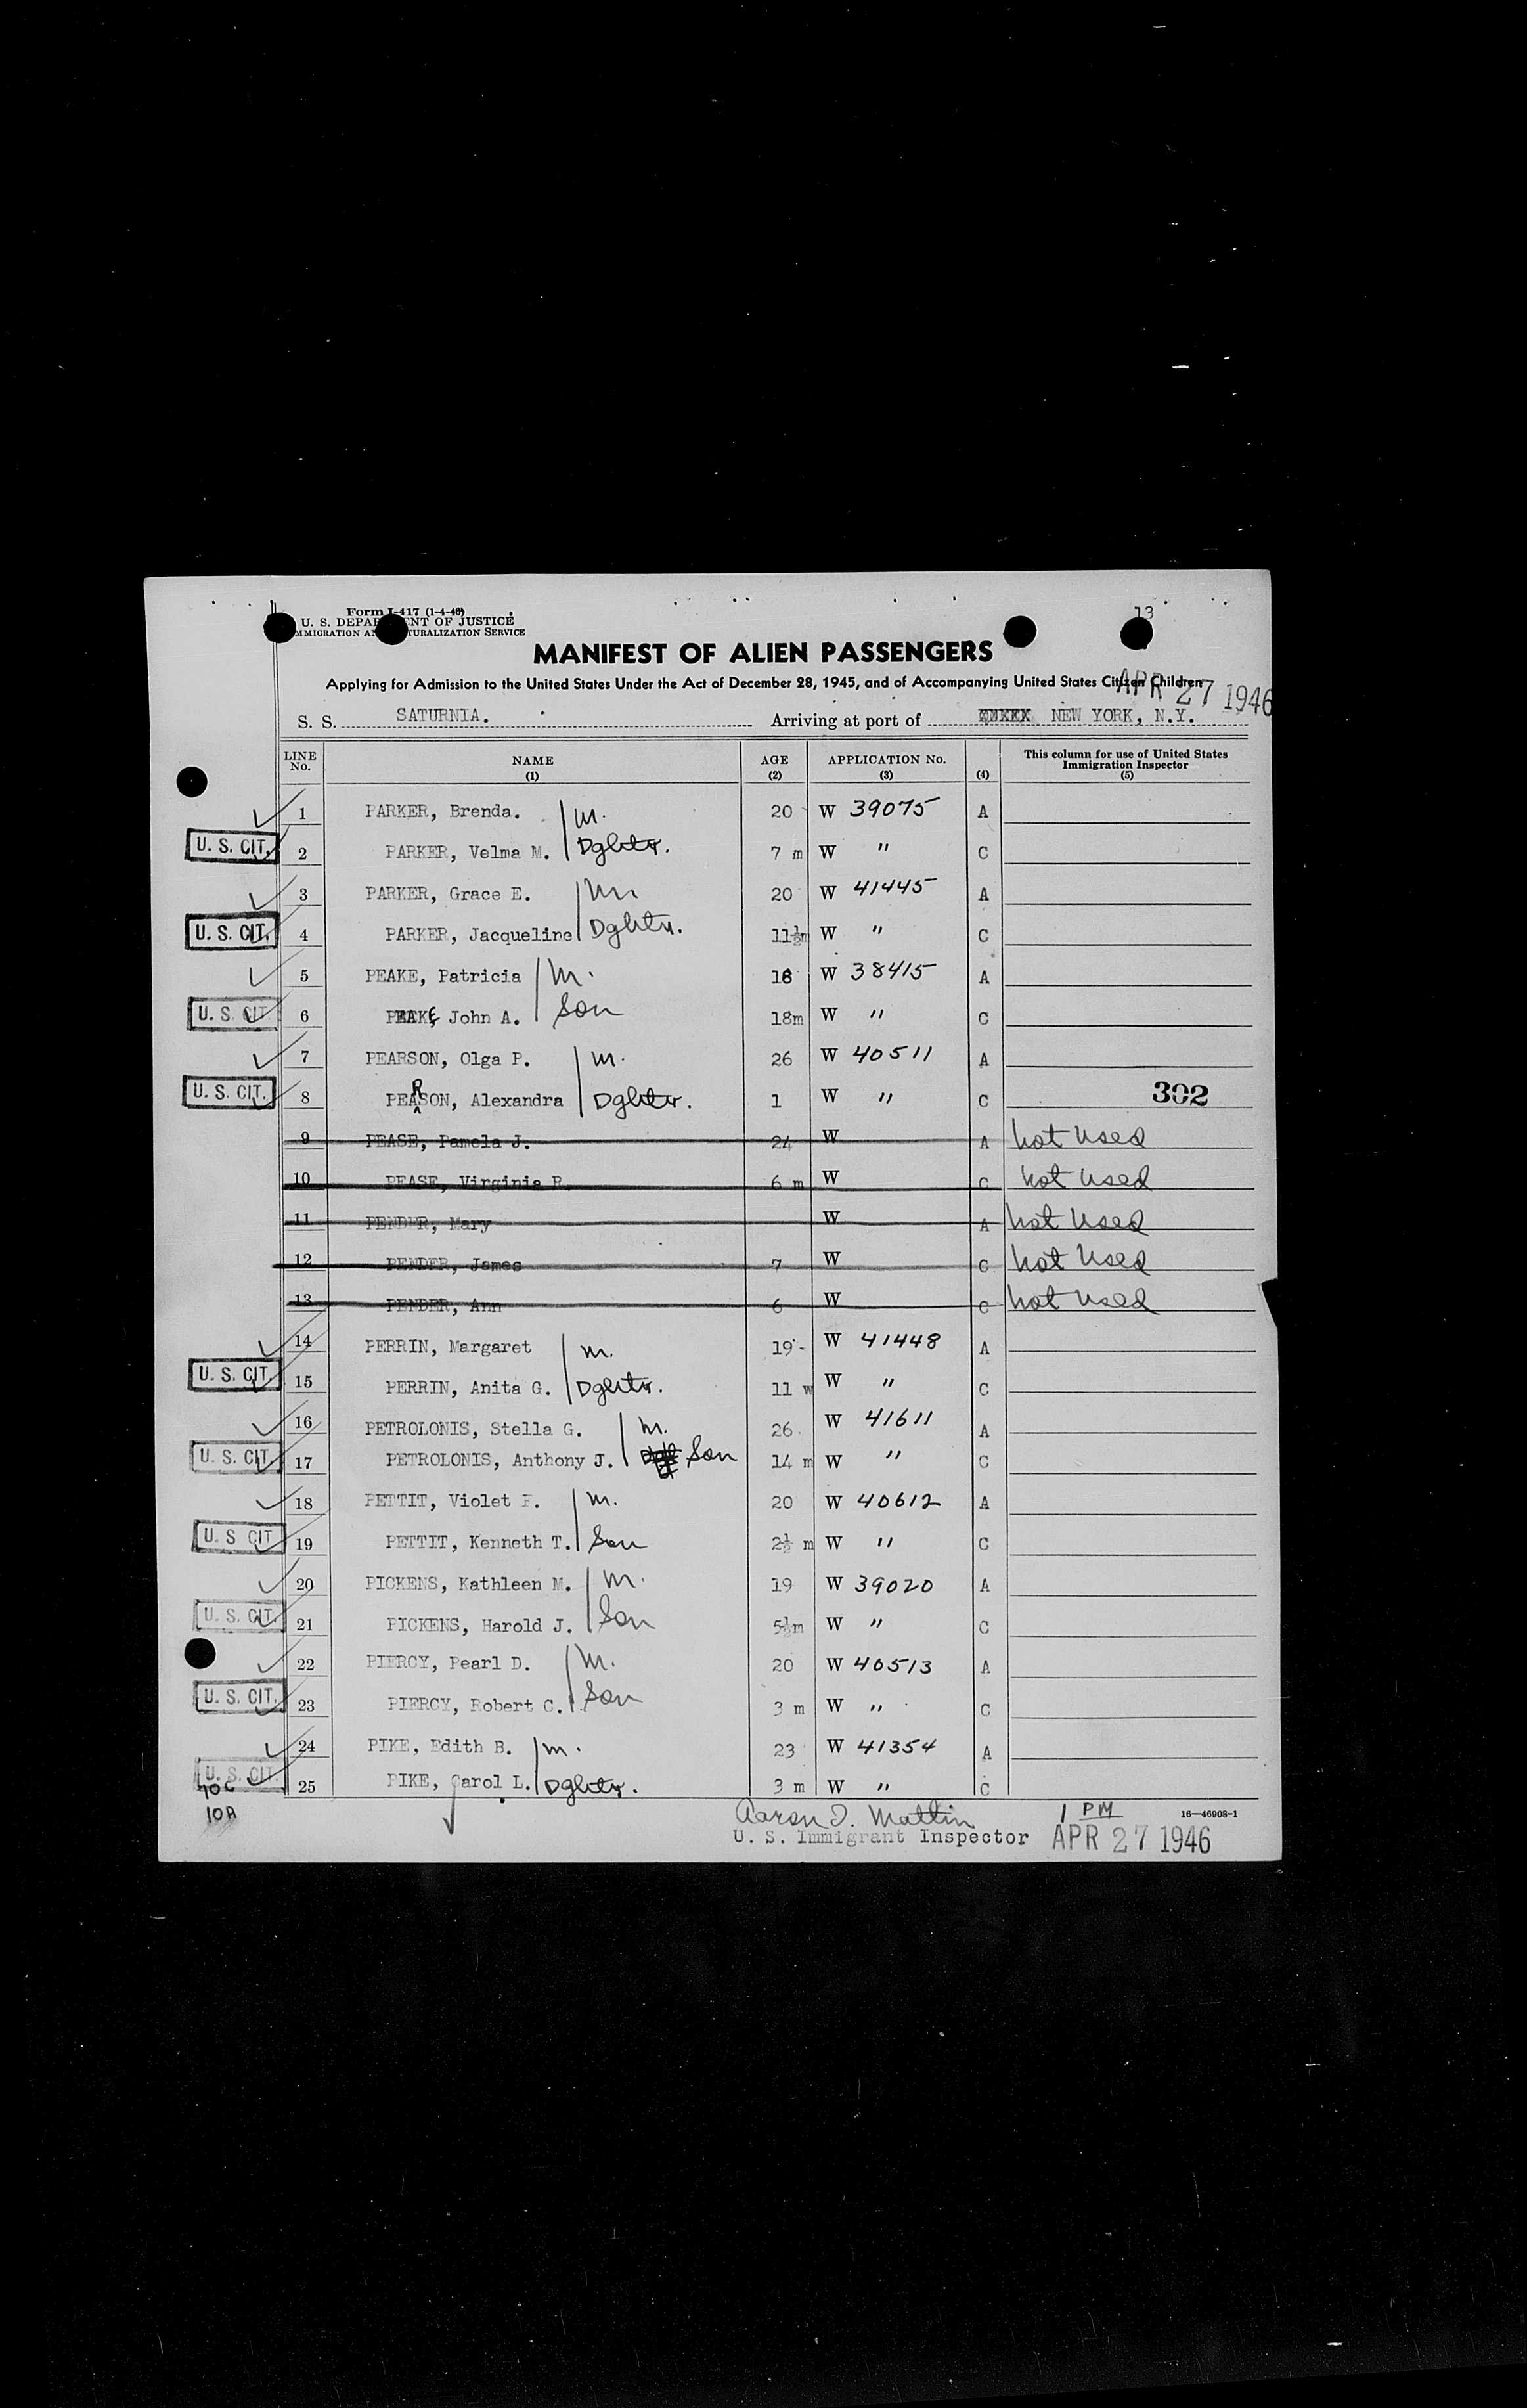 13
Form I-417 (1-4-46)
U. S. DEPARTMENT OF JUSTICE
IMMIGRATION AND NATURALIZATION SERVICE
MANIFEST OF ALIEN PASSENGERS
Applying for Admission to the United States Under the Act of December 28, 1945, and of Accompanying United States Citizen Children
APR 27 1946
S. S. SATURNIA. Arriving at port of NEW YORK, N.Y.
LINE No. NAME (1) AGE (2) APPLICATION No. (3) (4) This column for use of United States Immigration Inspector (5)
1 PARKER, Brenda. m. 20 W 39075 A
U. S. CIT. 2 PARKER, Velma M. Dghtr. 7 m W " C
3 PARKER, Grace E. m 20 W 41445 A
U. S. CIT. 4 PARKER, Jacqueline Dghtr. 11½m W " C
5 PEAKE, Patricia m. 18 W 38415 A
U. S. CIT. 6 PEAKE John A. Son 18m W " C
7 PEARSON, Olga P. m. 26 W 40511 A
U. S. CIT. 8 PEARSON, Alexandra Dghtr. 1 W " C 302
9 PEASE, Pamela J. 24 W A not used
10 PEASE, Virginia R. 6 m W C not used
11 PENDER, Mary W A not used
12 PENDER, James 7 W C not used
13 PENDER, Ann 6 W C not used
14 PERRIN, Margaret m. 19 - W 41448 A
U. S. CIT. 15 PERRIN, Anita G. Dghtr. 11 w W " C
16 PETROLONIS, Stella G. m. 26. W 41611 A
U. S. CIT. 17 PETROLONIS, Anthony J. Son 14 m W " C
18 PETTIT, Violet F. m. 20 W 40612 A
U. S CIT 19 PETTIT, Kenneth T. Son 2½ m W " C
20 PICKENS, Kathleen M. m. 19 W 39020 A
U. S. CIT. 21 PICKENS, Harold J. Son 5½m W " C
22 PIERCY, Pearl D. m. 20 W 40513 A
U. S. CIT. 23 PIERCY, Robert C. Son 3 m W " C
24 PIKE, Edith B. m. 23 W 41354 A
U. S. CIT. 25 PIKE, Carol L. Dghtr. 3 m W " C
10C
10A
Aaron I. Mattin 1 PM 16—46908-1
U. S. Immigrant Inspector APR 27 1946